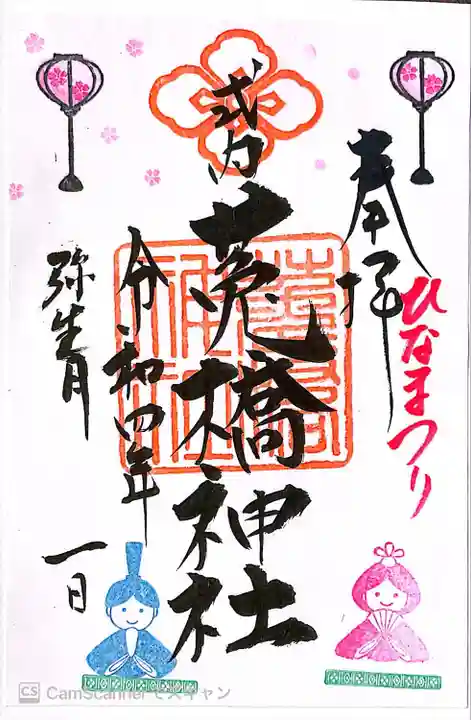 奉拝
ひなまつり
式内
菟橋神社
令和四年
弥生月
一日
CS CamScanner でスキャン